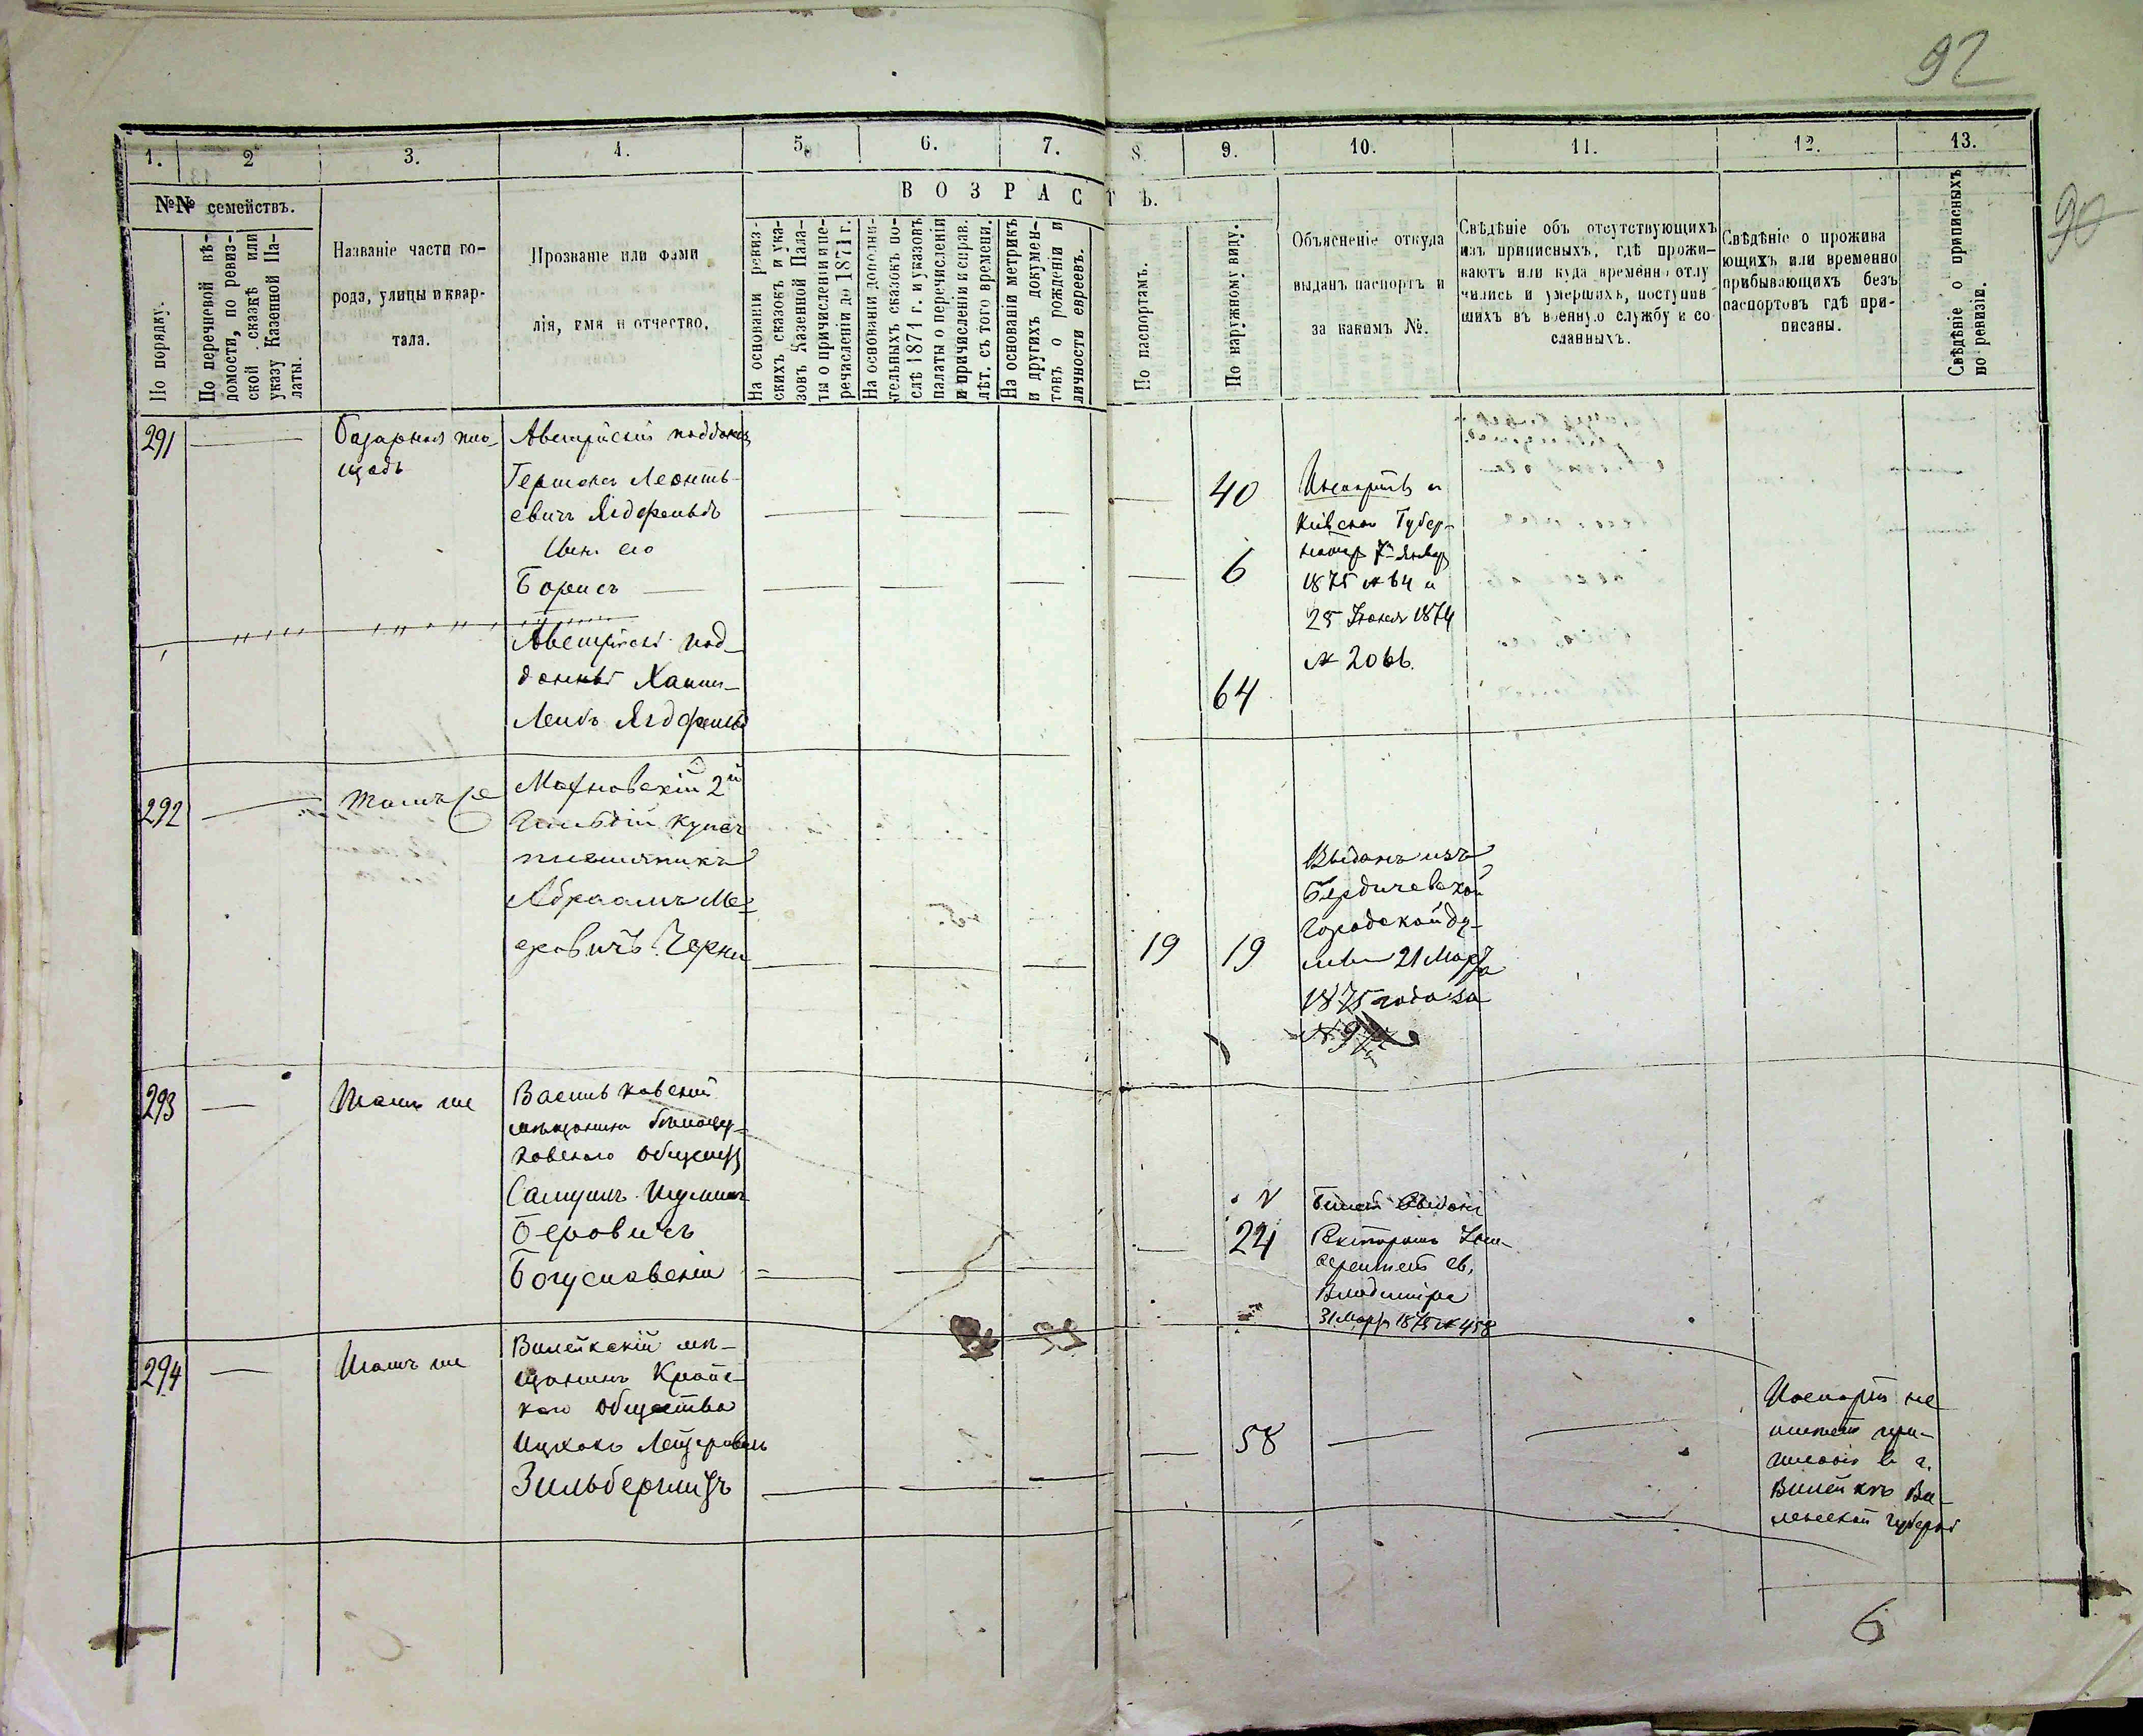 92
90
1. 2 3. 4. 5. 6. 7. 8. 9. 10. 11. 12. 13.
№№ семействъ.
По порядку.
По перечневой вѣ-
домости, по ревиз-
ской сказкѣ или
указу Казенной Па-
латы.
Названіе части го-
рода, улицы и квар-
тала.
Прозваніе или фами
лія, имя и отчество.
ВОЗРАСТЪ.
На основаніи ревиз-
скихъ сказокъ и ука-
зовъ Казенной Пала-
ты о причисленіи и пе-
речисленіи до 1871 г.
На основаніи дополни-
тельныхъ сказокъ по-
слѣ 1871 г. и указовъ
палаты о перечисленіи
и причисленіи и справ.
лѣт. съ того времени.
На основаніи метрикъ
и другихъ докумен-
товъ о рожденіи и
личности евреевъ.
По паспортамъ.
По наружному виду.
Объясненіе откуда
выданъ паспортъ и
за какимъ №.
Свѣдѣніе объ отсутствующихъ
изъ приписныхъ, гдѣ прожи-
ваютъ или куда временно отлу
чились и умершихъ, поступив
шихъ въ военную службу и со
сланныхъ.
Свѣдѣніе о прожива
ющихъ или временно
прибывающихъ безъ
паспортовъ гдѣ при-
писаны.
Свѣдѣніе о приписныхъ
по ревизіи.
291
Базарная пло-
щадь
Австрійскій подданый
Гершонъ Леонть-
евичъ
его
Борисъ
Австрійскій под-
данный
Лейбъ
40
6
64
Паспортъ
Кіевскаго Губер-
7 Январ
1875 № 64 и
25 Іюня 1874
№ 2066.
292
тамъ же
Махновскій 2й
Гильдіи купец
племянникъ
Абраамъ Ме-
еровичъ Черни
19 19
Выданъ изъ
Бердичевской
Городской Ду-
мы 21 Марта
1875 года за
№
293
тамъ же
Васильковскій
мѣщанинъ Бѣлоцер-
ковскаго общества
Самуилъ
Беровичъ
Богуславскій
24
Билетъ Выданъ
Ректоромъ Уни-
верситета Св.
Владиміра
31 Март 1875 № 458
294
тамъ же
Вилейскій мѣ-
щанинъ Крайс-
каго общества
Ицхокъ Лейзеровичъ
Зильберминцъ
58
Паспорта не
имѣетъ при-
писанъ в г.
Вилейкѣ Ви-
ленской губерніи
6